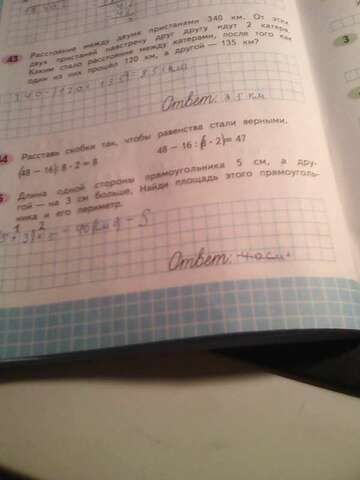 43 Расстояние между двумя пристанями 340 км. От этих
двух пристаней навстречу друг другу идут 2 катера.
Каким стало расстояние между катерами, после того как
один из них прошёл 120 км, а другой — 135 км?
Ответ: 85 км
44 Расставь скобки так, чтобы равенства стали верными.
(48 - 16): 8 · 2 = 8 48 - 16 : (8 · 2) = 47
Длина одной стороны прямоугольника 5 см, а дру-
гой — на 3 см больше. Найди площадь этого прямоуголь-
ника и его периметр.
1 2
Ответ: 40 см